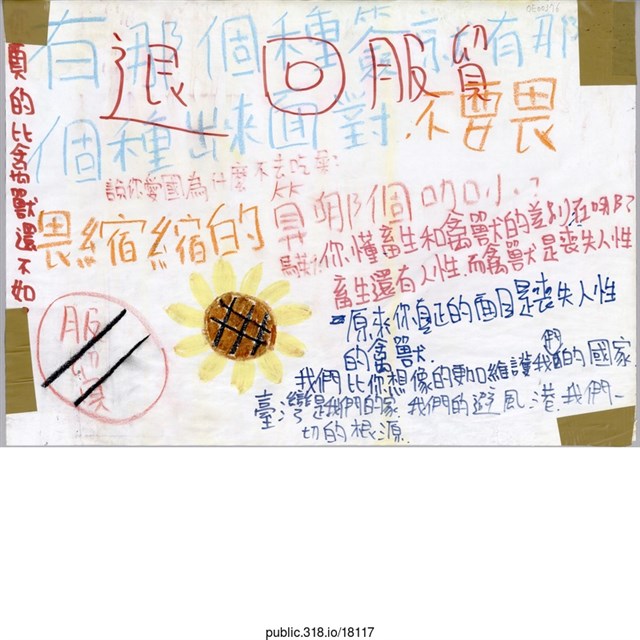 有那個種簽就有那
個種出來面對.不要畏
畏縮縮的
退回服貿
真的比禽獸還不如。
說你愛國為什麼不去吃屎?
那個咖小?
你懂畜生和禽獸的差別在哪?
畜生還有人性.而禽獸是喪失人性
原來你真正的面目是喪失人性
的禽獸.
我們比你想像的更加維護我們的國家.
臺灣是我們的家.我們的避風港.我們一
切的根源.
服貿
public.318.io/18117